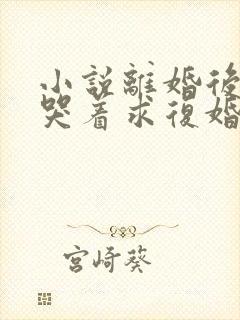 小説離婚後
哭着求復婚
宮崎葵